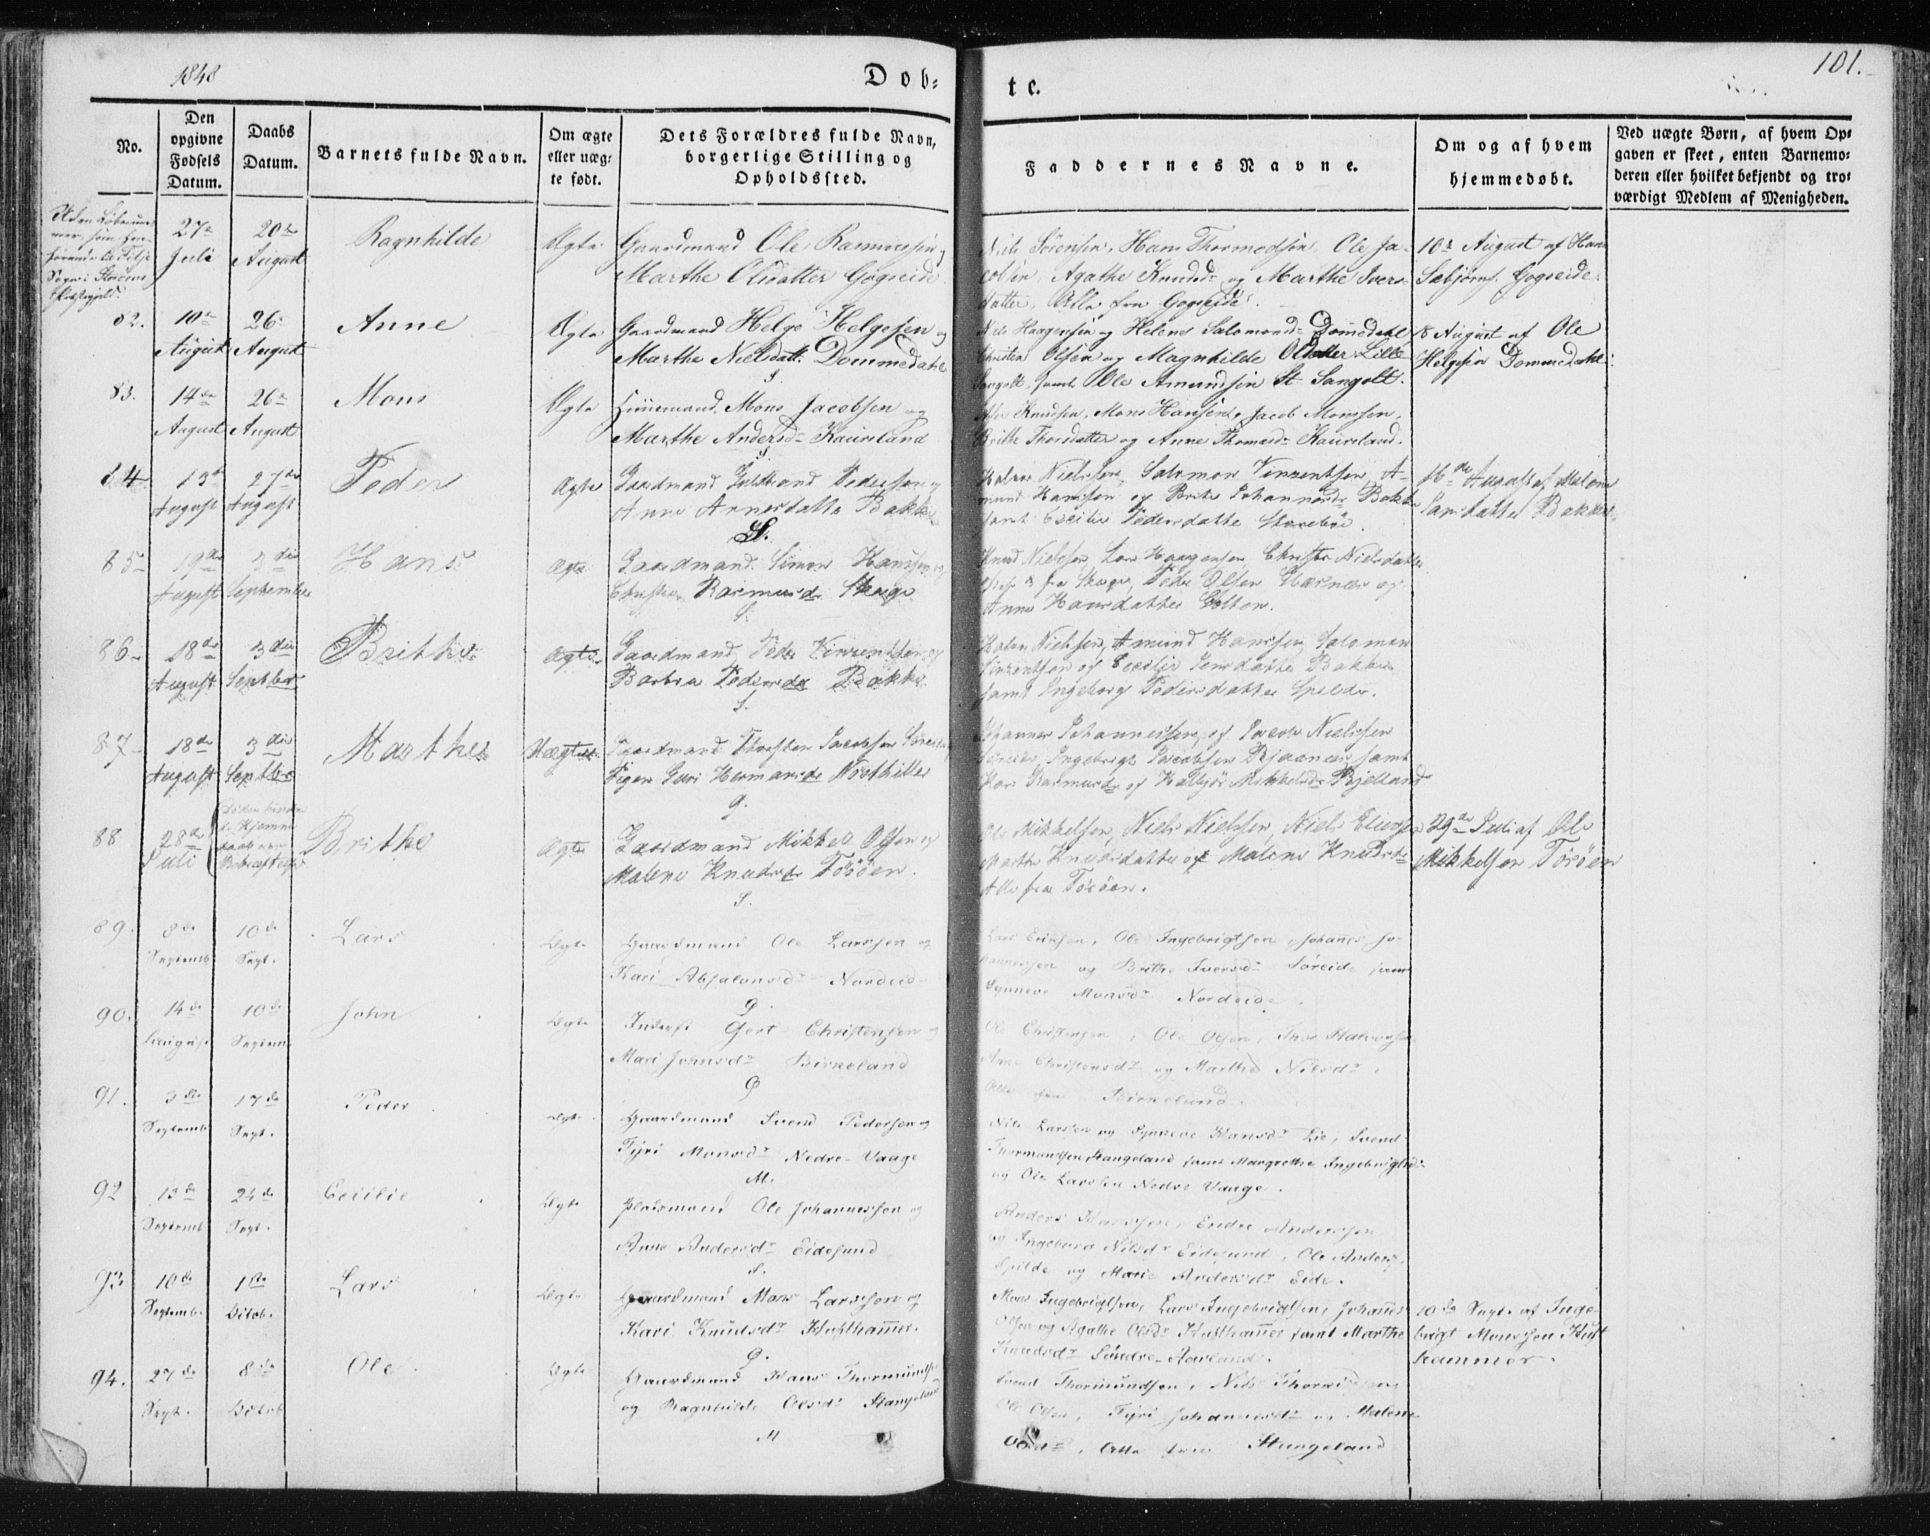 1848
Dob=
te.
101.
No.
Den
opgivne
Fødsels
Datum.
Daabs
Datum.
Barnets fulde Navn.
Om ægte
eller uæg-
te født.
Dets Forældres fulde Navn,
borgerlige Stilling og
Opholdssted.
Faddernes Navne.
Om og af hvem
hjemmedøbt.
Ved uægte Børn, af hvem Op-
gaven er skeet, enten Barnemo-
deren eller hvilket bekjendt og tro-
værdigt Medlem af Menigheden.
27de
Juli
20de
August
Ragnhilde
Ægte
Gaardmand Ole Rasmussen og
Marthe Olsdatter Gogseide
Niels Sørensen, Hans Thormodsen, Ole Ja-
cobsen, Agathe Knudsdr og Marthe Ivers-
datter, Alle fra Gogseide.
10de August af Hans
Sæbjørns. Gogseide.
82.
10de
August
26de
August
Anne
Ægte
Gaardmand Helge Helgesen og
Marthe Nielsdatt. Dommedahl
S
Nils Haagensen og Helene Salomonsdr Dommedahl
Olsen og Magnhilde Olsdatter Lille
Sangolt, samt Ole Amundsen St. Sangolt.
18 August af Ole
Helgesen Dommedahl.
83.
14de
August
26de
August
Mons
Ægte
Mons Jacobsen og
Marthe Andersdr Kaursland
S
Knudsen, Mons Hansen, Jacob Monssen,
Brithe Thorsdatter og Anne Thomasdr Kaursland.
84
13de
August
27de
August
Peder
Ægte
Gaardmand Pedersen og
Anne Arnesdatter Bakke
S.
Halvor Nielssen, Salomon Vinzentsen, A-
mund Hanssen og Brite Johannesdr Bakke
samt Cecilie Pedersdatter Storebøe.
16de August af Malene
Bakke.
85
19de
August
3die
September
Hans
Ægte
Gaardmand Simon Hanssen og
Rasmusdr Skage
S.
Knud Nielssen, Lars Haagensen, Nielsdatter
fra Skage, Peder Olsen og
Anne Hansdatter
86
18de
August
3die
Septber
Brithe
Ægte
Gaardmand Peder Vinzentsen og
Barbra Pedersdr Bakke
S.
Halvor Nielssen, Amund Hanssen, Salomon
Vinzentsen og Cecilie Jensdatter Bakke
samt Ingeborg Pedersdatter Spilde.
87
18de
August
3die
Septbr
Marthe
Uægte
Gaardmand Thorsten Jacobsen
Pigen Guri Hermansdr
G.
Johannes Johannessen, og Jacob Nielssen
Ingebrigt Jacobsen samt
Kari Rasmusdr og Mikkelsdr Bjelland
88
28de
Juli
Hjemme
Brithe
Ægte
Gaardmand Mikkel Olsen og
Malene Knudsdr Torøen.
S.
Ole Mikkelsen, Niels Nielssen, Niels Eliassen
Marthe Knudsdatter og Malene Knudsdr
Alle fra Torøen.
29de Juli af Ole
Mikkelsen Torøen
89.
8de
Septemb
10de
Sept.
Lars
Ægte
Gaardmand Ole Larssen og
Kari Absalonsdr Nordeide
G
Lars Eriksen, Ole Ingebrigtsen, Johannes Jo-
hannessen og Brithe Iversdr Søreide samt
Synneve Monsdr Nordeide.
90.
14de
August
10de
Septemb
John
Ægte
Inderst Gert Christensen og
Mari Johnsdr Birkeland
G
Ole Christensen, Ole Olsen, Thor Halvorsen
Anne Christensdr og Marthe Nilsdr,
Alle fra Birkeland.
91.
3die
Septemb
17de
Sept.
Peder
Ægte
Gaardmand Svend Pedersen og
Fyri Monsdr Nedre-Vaage
M.
Nils Larssen og Synneve Hansdr Lie, Svend
Thormundsen Stangeland samt Margrethe Ingebrigtsdr
og Ole Larssen Nedre Vaage.
92
13de
Septemb
24de
Sept.
Cecilie
Ægte
Pladsmand Ole Johannessen og
Anne Andersdr Eidesund
S.
Anders Hanssen, Endre Anderssen
og Ingeborg Nilsdr Eidesund, Ole Anders.
Spilde og Marie Andersdr Eide.
93
10de
Septemb.
1ste
Octob.
Lars
Ægte
Gaardmand Mons Larssen og
Kari Knudsdr Hufthammer.
G.
Mons Ingebrigtsen, Lars Ingebrigtsen, Johannes
Olsen og Agathe Olsdr Hufthammer samt Marthe
Knudsdr Søndre-Aarland.
10de Sept. af Inge-
brigt Monssen Huft
hammer.
94.
27de
Sept.
8de
Octob
Ole
Ægte
Gaardmand Hans Thormunds.
og Ragnhilde Olsdr Stangeland
M
Svend Thormundsen, Nils
Ole Olsen, Fyri Johannesdr og Malene
Alle fra Stangeland